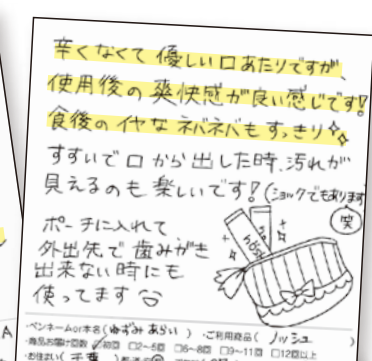 辛くなくて優しい口あたりですが、
使用後の爽快感が良い感じです!
食後のイヤなネバネバもすっきり
すすいで口から出した時、汚れが
見えるのも楽しいです!(ショックでもあります
笑
ポーチに入れて
外出先で歯みがき
出来ない時にも
使ってます
・ペンネームor本名(ゆずみ あらい) ・ご利用商品(ノッシュ
・商品お届け回数 初回 □2~5回 □6~8回 □9~11回 □12回以上
・お住まい(千葉
A